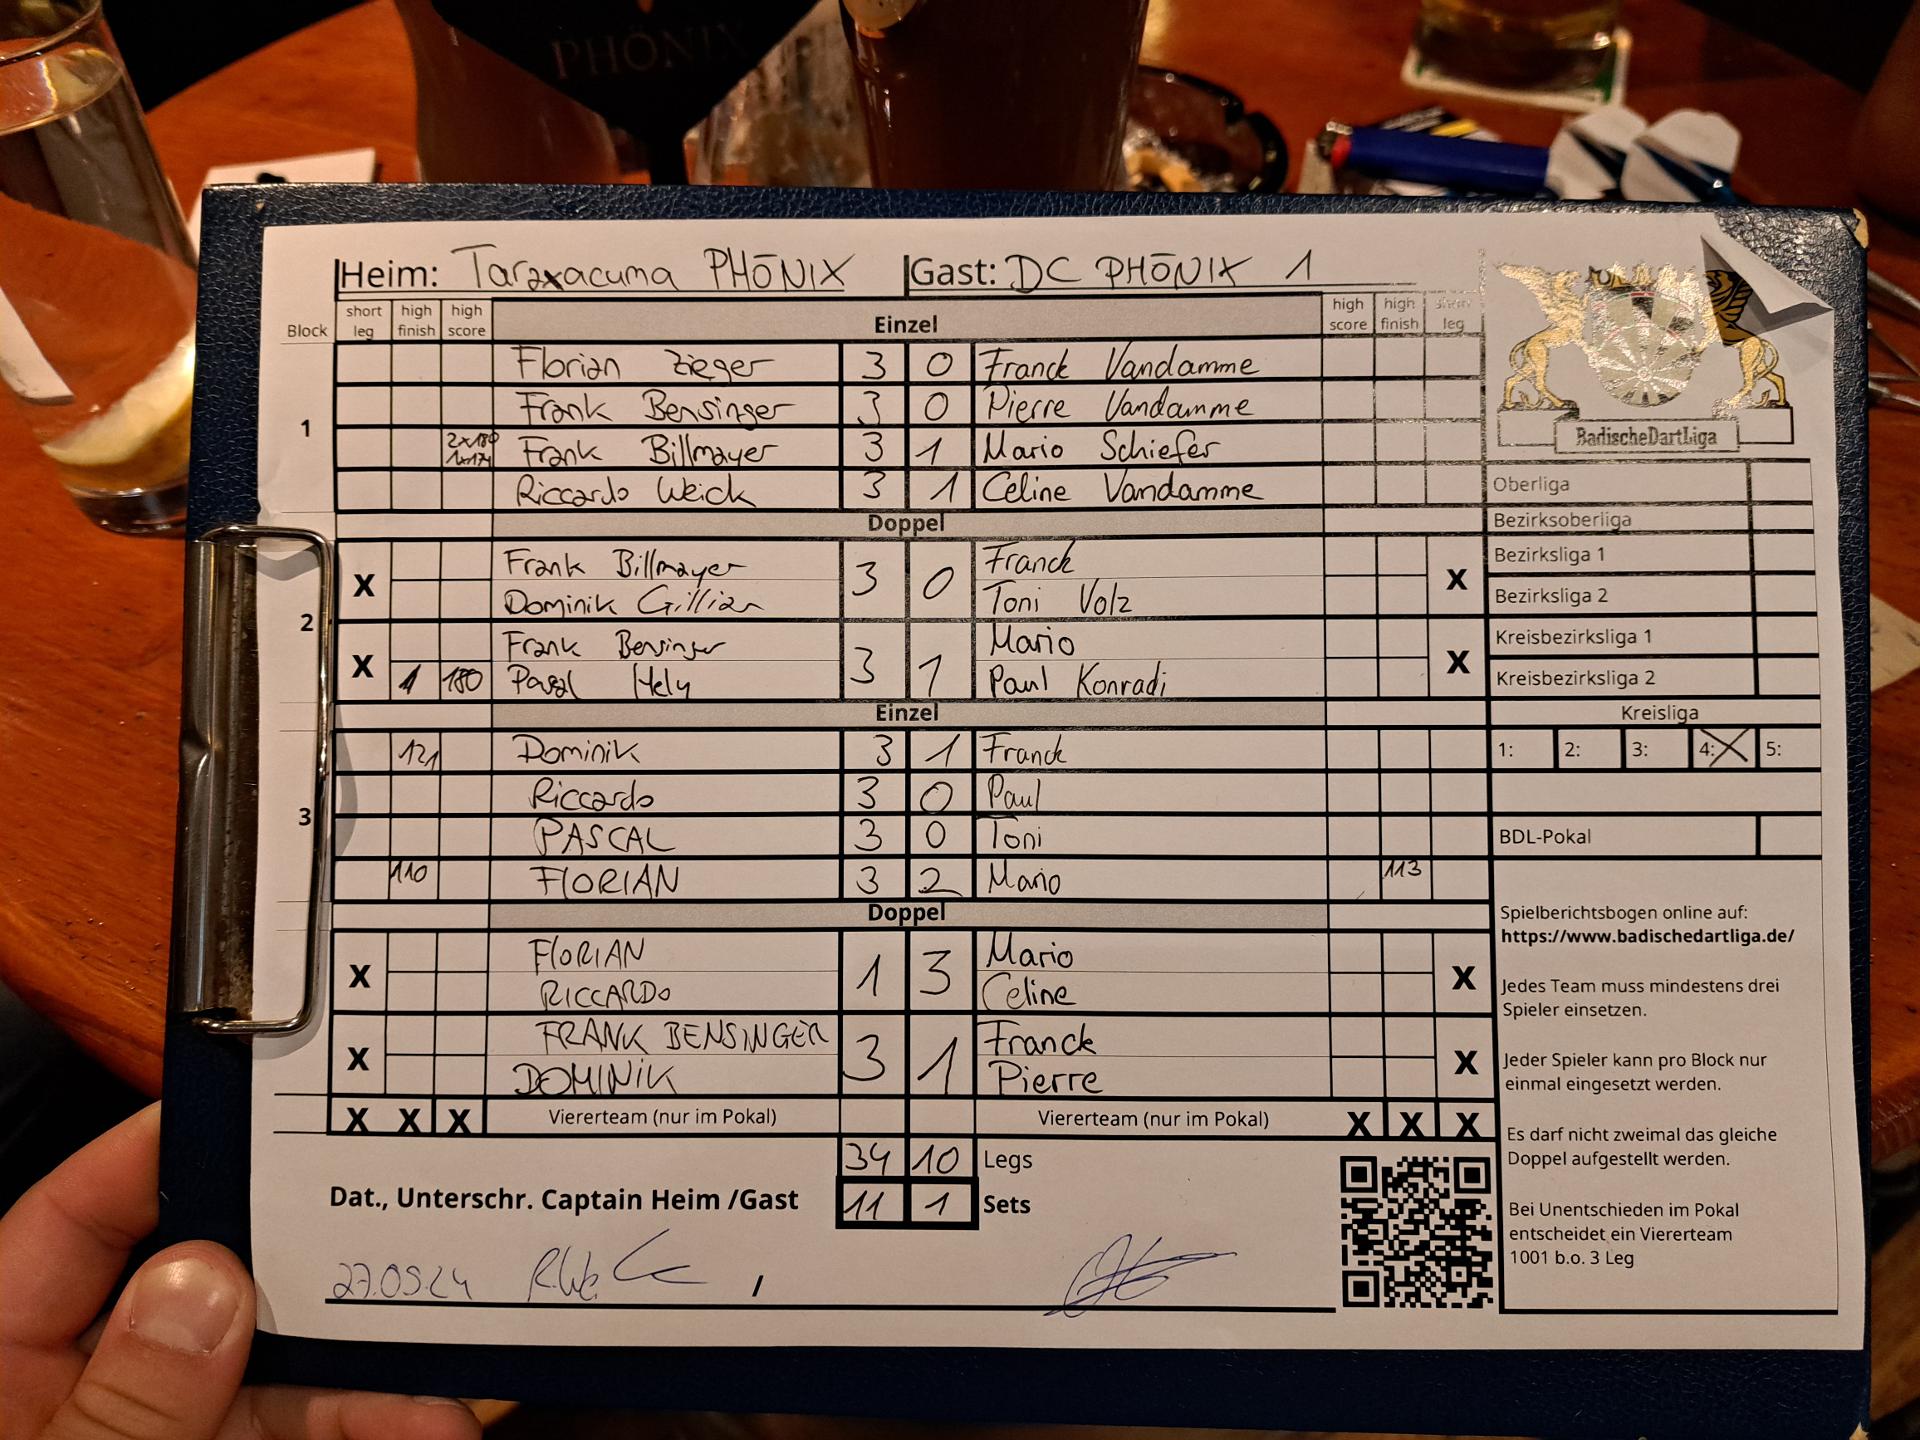 PHÖNIX
Heim: Taraxacuma PHÖNIX Gast: DC PHÖNIX 1
Block short leg high finish high score Einzel high score high finish short leg
1
Florian Zieger 3 0 Franck Vandamme
Frank Bensinger 3 0 Pierre Vandamme
2x180 1x174 Frank Billmayer 3 1 Mario Schiefer
Riccardo Weick 3 1 Celine Vandamme
Doppel
2
X Frank Billmayer 3 0 Franck X
Dominik Gillian Toni Volz
X Frank Bensinger 3 1 Mario X
180 Pascal Hely Paul Konradi
Einzel
3
121 Dominik 3 1 Franck
Riccardo 3 0 Paul
PASCAL 3 0 Toni
110 FLORIAN 3 2 Mario 113
Doppel
X FLORIAN 1 3 Mario X
RICCARDO Celine
X FRANK BENSINGER 3 1 Franck X
DOMINIK Pierre
X X X Viererteam (nur im Pokal) Viererteam (nur im Pokal) X X X
34 10 Legs
Dat., Unterschr. Captain Heim /Gast 11 1 Sets
27.09.24 /
BadischeDartLiga
Oberliga
Bezirksoberliga
Bezirksliga 1
Bezirksliga 2
Kreisbezirksliga 1
Kreisbezirksliga 2
Kreisliga
1: 2: 3: 4: X 5:
BDL-Pokal
Spielberichtsbogen online auf:
https://www.badischedartliga.de/
Jedes Team muss mindestens drei
Spieler einsetzen.
Jeder Spieler kann pro Block nur
einmal eingesetzt werden.
Es darf nicht zweimal das gleiche
Doppel aufgestellt werden.
Bei Unentschieden im Pokal
entscheidet ein Viererteam
1001 b.o. 3 Leg